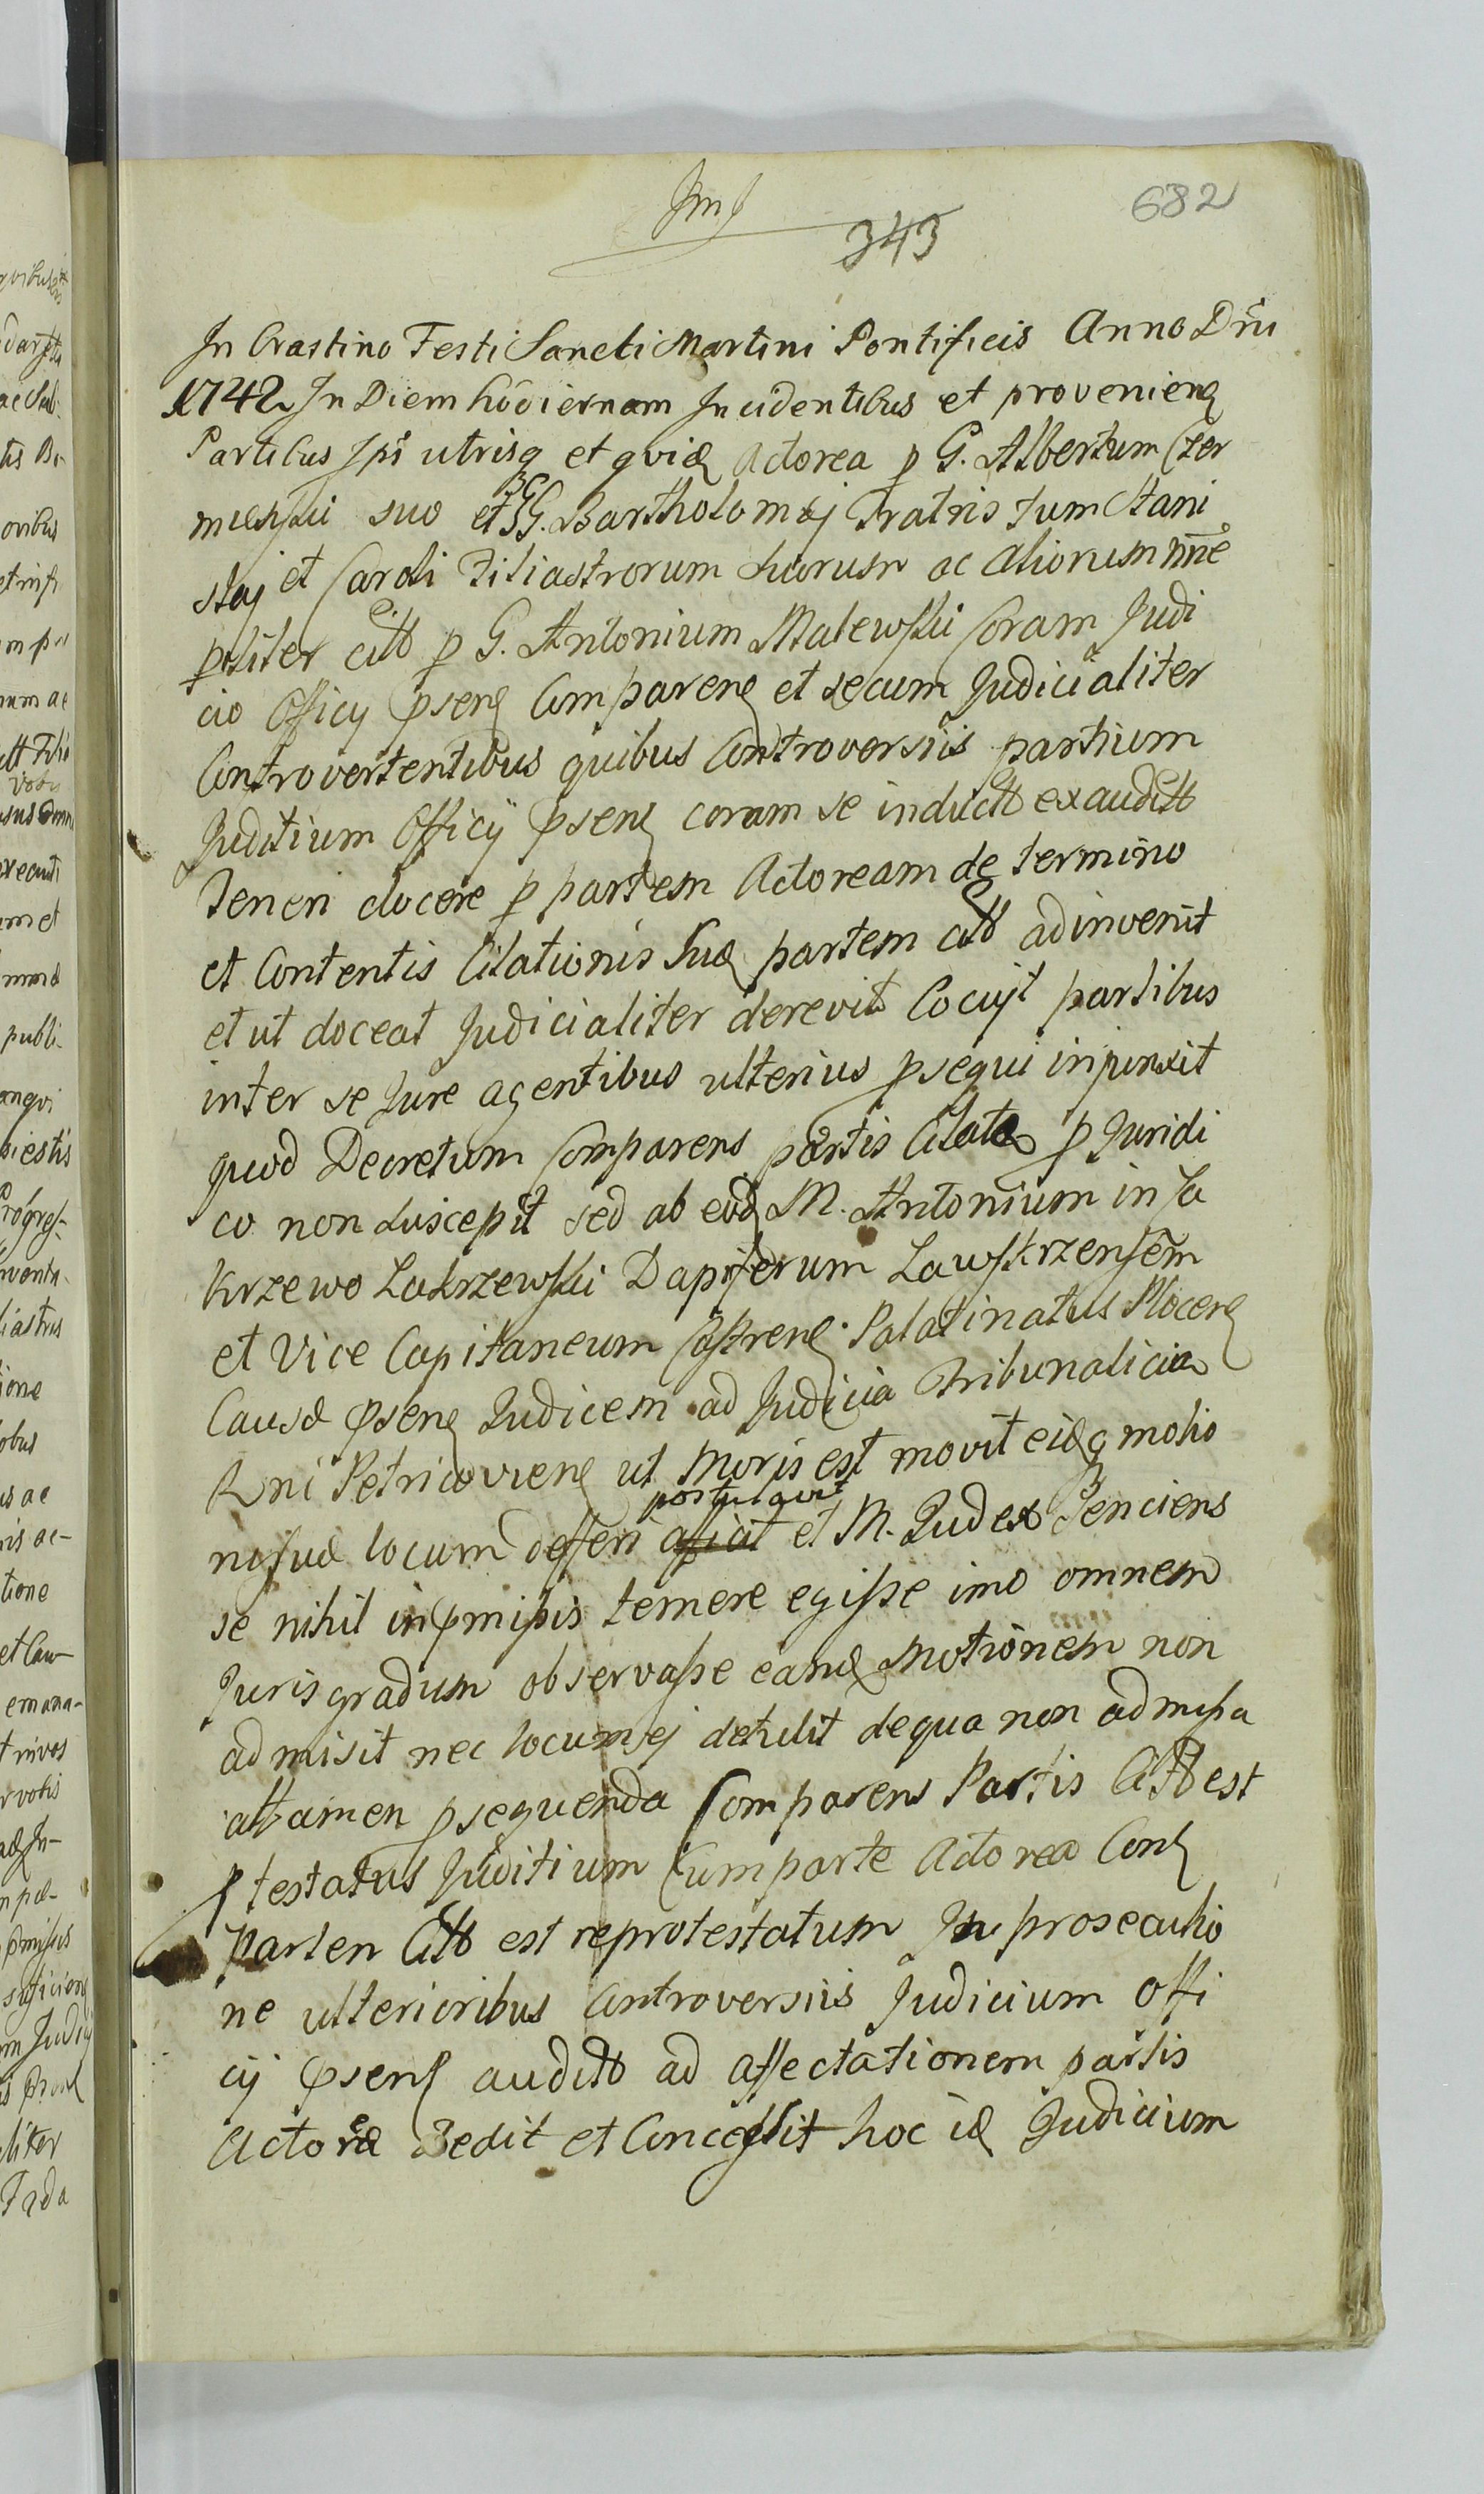 682
343
In Crastino Festi Sancti Martini Pontificis Anno Dni
1742 In Diem hodiernam Incidentibus et provenienq
Partibus Ipsi utrisq et quidq Actorea p G. Albertum Czer
minski suo et GG. Bartholomaj Fratris tum Stani
slaj et Caroli Filiastrorum suorum ac aliorum nne
pnliter citt p G. Antonium Malewski Coram Judi
cio Officy psenq Comparenq et secum Judicialiter
Controvertentibus quibus Controversiis partium
Juditium Officij psenq coram se inductt exauditt
Teneri docere p partem Actoream de termino
et Contentis Citationis suæ partem citt adinvenit
et ut doceat Judicialiter decrevit Locuqt partibus
inter se Jure agentibus ulterius psequi injunxit
quod Decretum Comparens partis Citatæ p Juridi
co non suscepit sed ab eodq M. Antonium in Za
krzewo Zakrzewski Dapiferum Zawskrzensem
et Vice Capitaneum Castrenq Palatinatus Plocenq
Causæ psenq Judicem ad Judicia Tribunalicia
Rni Petricovienq ut Moris est movit eidq motio
postulavit
ni suæ locum defferi et M. Judex Senciens
se nihil in pmissis temere egisse imo omnem
Juris gradum observasse eandq Motionem non
admisit nec locum ej detulit de qua non admissa
attamen psequenda Comparens Partis Citt est
ptestatus Juditium Cum parte Actorea Conq
parten Citt est reprotestatum In prosecutio
ne ulterioribus Controversiis Judicium Offi
cij psenq auditt ad affectationem partis
Actoreæ Dedit et Concessit hoc idq Judicium